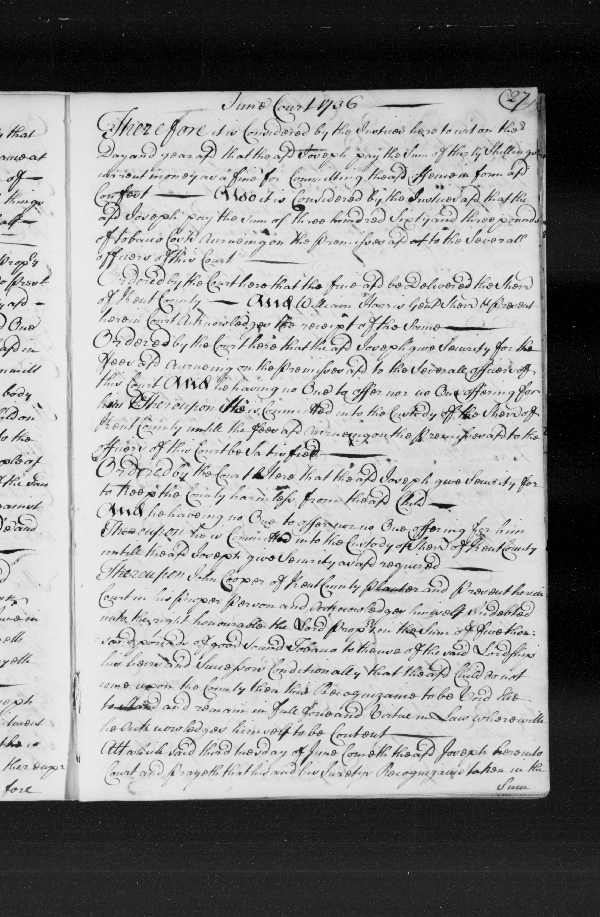 June Court 1736
27
Therefore it is Considered by the Justices here to wit on the
Day and year afd that the afd Joseph pay the Sum of thirty Shillings
current money as a fine for Committing the afd offence in form afd
Confest And it is Considered by the Justices afd that the
afd Joseph pay the Sum of three hundred Sixty and three pounds
of tobacco Costs Accrueing on the premisses afd to the Severall
officers of this Court
Ordered by the Court here that the fine afd be Delivered the Sherd
of Kent County And William Gent Sherd present
herein Court Acknowledges the receipt of the Same
Ordered by the Court here that the afd Joseph give Security for the
fees afd Accrueing on the premisses afd to the Severall officers of
this Court And he having no One to offer nor no One offering for
him Thereupon He is Committed into the Custody of the Sherd of
Kent County untill the fees afd Accrueing on the premisses afd to the
officers of this Court be Satisfied
Ordered by the Court Here that the afd Joseph give Security for
to keep the County harmless from the afd Child
And he having no One to offer nor no One offering for him
Thereupon he is Committed into the Custody of Sherd of Kent County
untill the afd Joseph give Security as afd required
Thereupon John Cooper of Kent County Planter and present here in
Court in his proper person and Acknowledges himself Indebted
unto the right honourable the Lord Propry in the Sum of five thou:
:sand pounds of good Sound Tobacco to the use of the said Lordship
his heirs and Successors Conditionally that the afd Child do not
come upon the County then this Recognizance to be Void Else
to Stand and remain in full force and Virtue in Law wherewith
he Acknowledges himself to be Content
At which said third tuesday of June Cometh the afd Joseph here into
Court and prayeth that his and his Sureties Recognizance taken in the
Sum
that
of
things
Propry
afd
One
afd in
body
to the
the said
and
in
the
fore